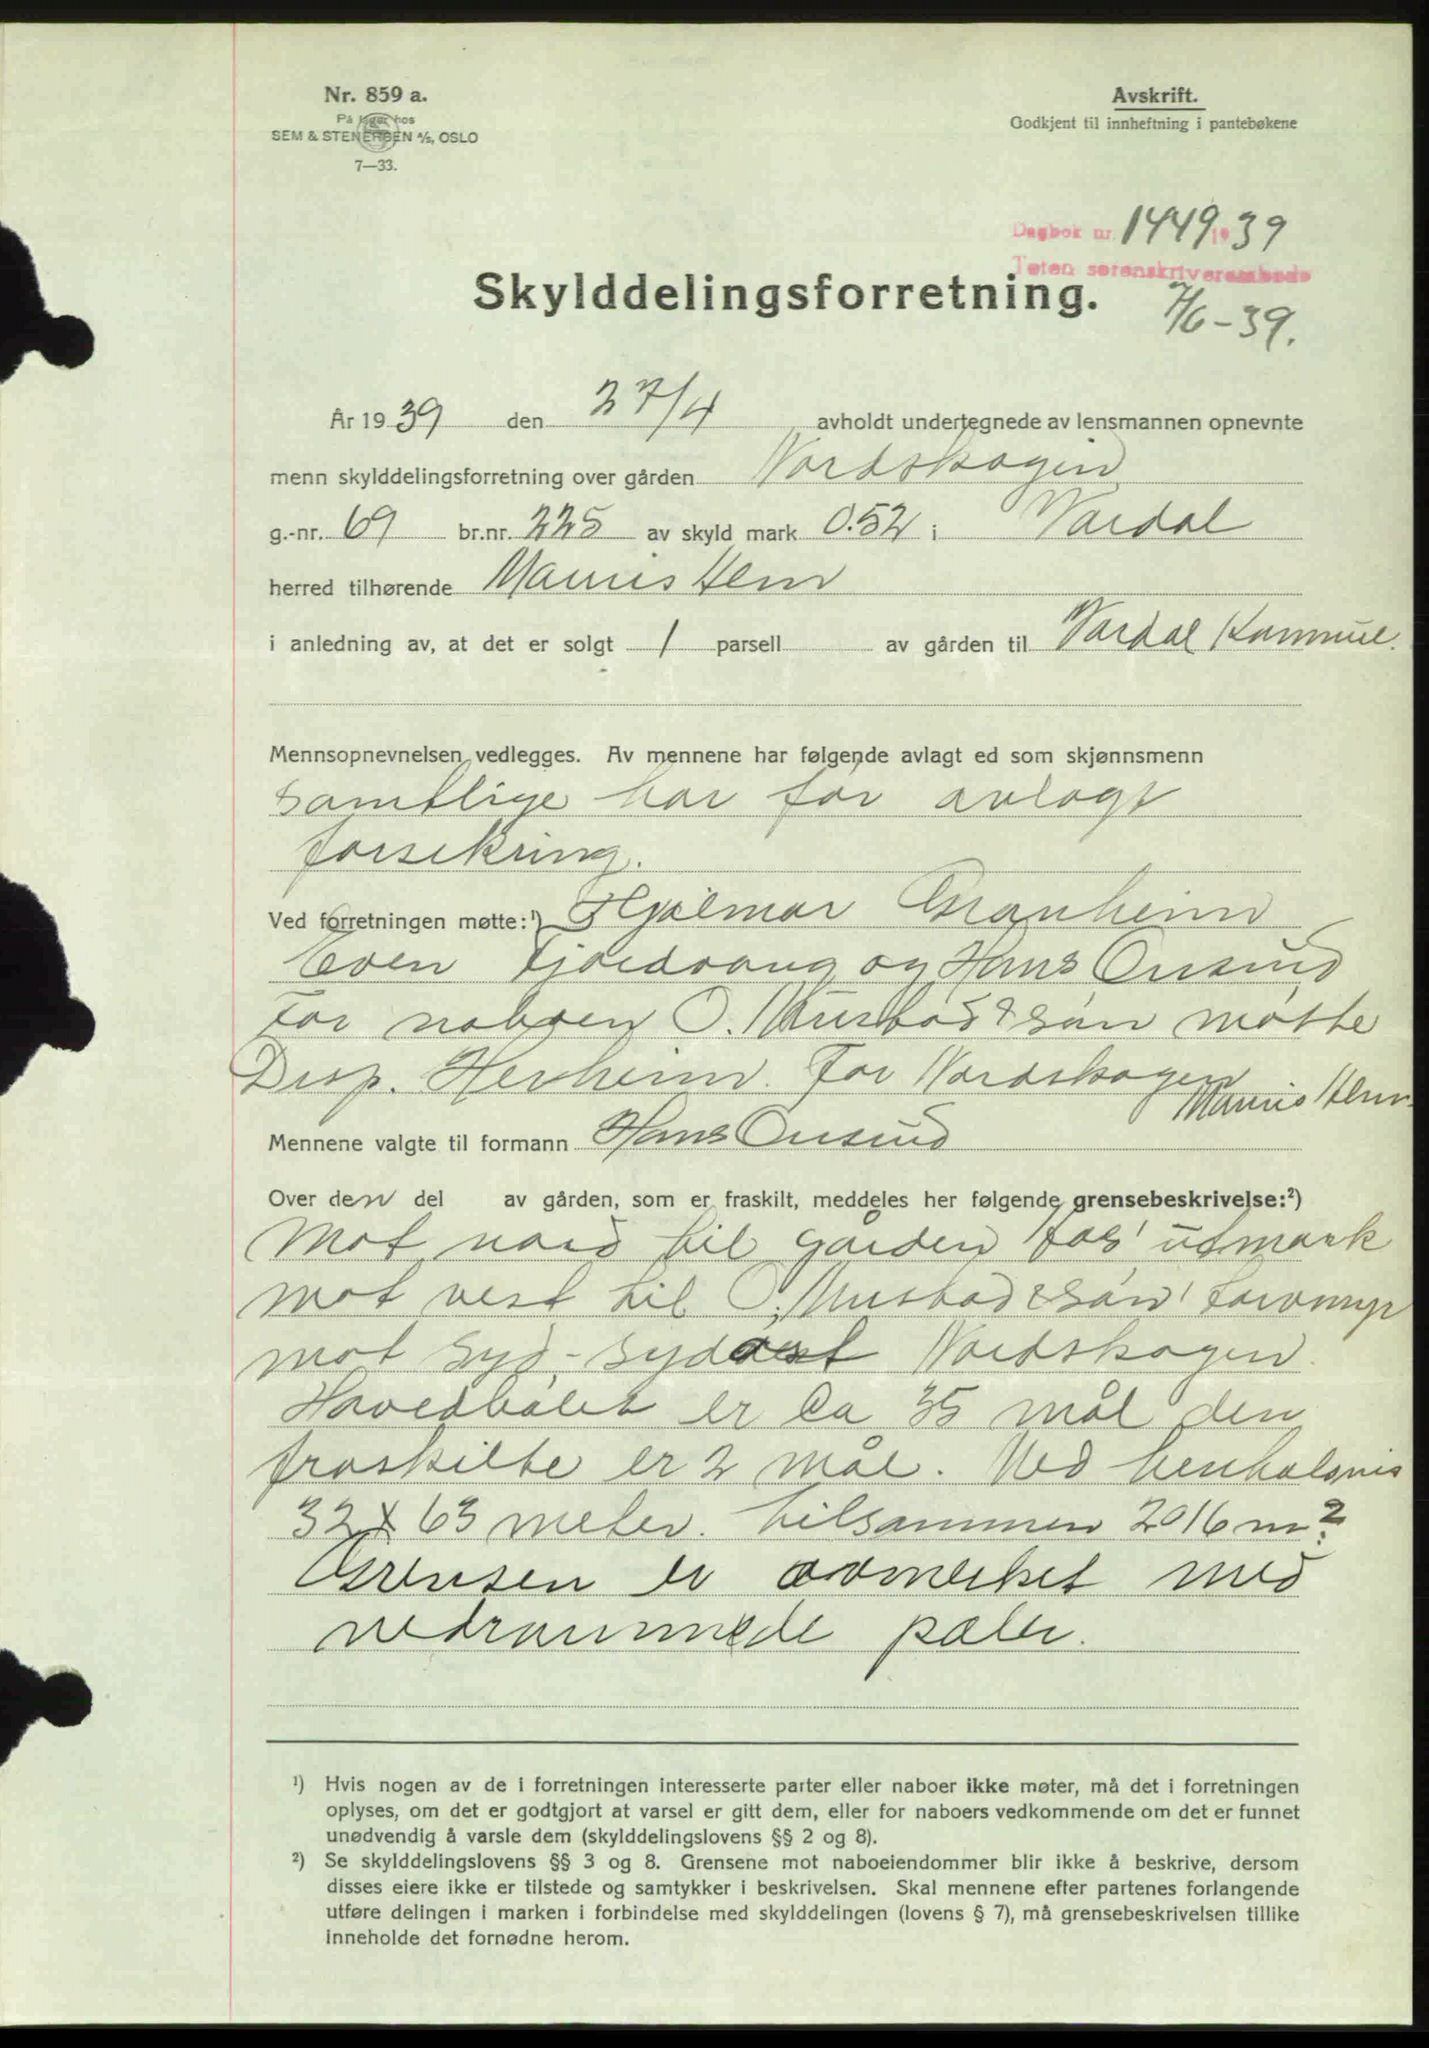 Nr. 859 a.
På lager hos
SEM & STENERSEN A/S, OSLO
7—33.
Avskrift.
Godkjent til innheftning i pantebøkene
Dagbok nr. 1449 19 39
Toten sorenskriverembede
7/6-39.
Skylddelingsforretning.
År 1939 den 27/4 avholdt undertegnede av lensmannen opnevnte
menn skylddelingsforretning over gården Nordskogen
g.-nr. 69 br.nr. 225 av skyld mark 0.52 i Vardal
herred tilhørende Mauris Hem
i anledning av, at det er solgt 1 parsell av gården til Vardal Kommune.
Mennsopnevnelsen vedlegges. Av mennene har følgende avlagt ed som skjønnsmenn
samtlige har før avlagt
forsikring.
Ved forretningen møtte:¹) Hjalmar Granheim
Even Fjordvang og Hans Onsrud
For naboen O. Mustad & søn møtte
Disp. Herheim. For Nordskogen
Mauris Hem.
Mennene valgte til formann Hans Onsrud
Over den del av gården, som er fraskilt, meddeles her følgende grensebeskrivelse:²)
Mot nord til gården Fos' utmark
mot vest til O. Mustad & søn'
mot syd-sydøst Nordskogen.
Hovedbølet er Ca 35 mål den
fraskilte er 2 mål. Ved henholdsvis
32 x 63 meter. tilsammen 2016 m².
Grensen er avmerket med
nedrammede pæler.
¹) Hvis nogen av de i forretningen interesserte parter eller naboer ikke møter, må det i forretningen
oplyses, om det er godtgjort at varsel er gitt dem, eller for naboers vedkommende om det er funnet
unødvendig å varsle dem (skylddelingslovens §§ 2 og 8).
²) Se skylddelingslovens §§ 3 og 8. Grensene mot naboeiendommer blir ikke å beskrive, dersom
disses eiere ikke er tilstede og samtykker i beskrivelsen. Skal mennene efter partenes forlangende
utføre delingen i marken i forbindelse med skylddelingen (lovens § 7), må grensebeskrivelsen tillike
inneholde det fornødne herom.